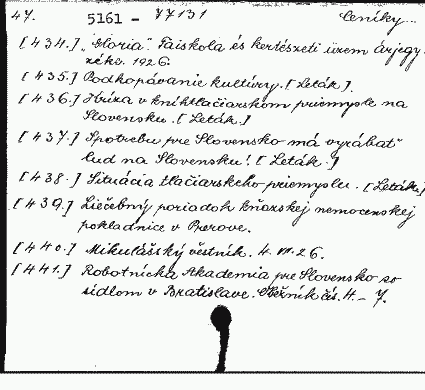 47. 5161 - 77131 Ceníky...
[434.] „Gloria". Faiskola és kertészeti üzem árjegy-
zéke. 1926.
[435.] Podkopávanie kultúry. [Leták].
[436.] Hrúza v kníhtlačiarskom priemysle na
Slovensku. [Leták.]
[437.] Spotrebu pre Slovensko má vyrábať
ľud na Slovensku! [Leták.]
[438.] Situácia tlačiarskeho priemyslu. [Leták.]
[439.] Liečebný poriadok kňazskej nemocenskej
pokladnice v Prerove.
[440.] Mikulášský věstník. 4. VII. 26.
[441.] Robotnícka Akademia pre Slovensko so
sídlom v Bratislave. Obežník čís. 4. - 7.